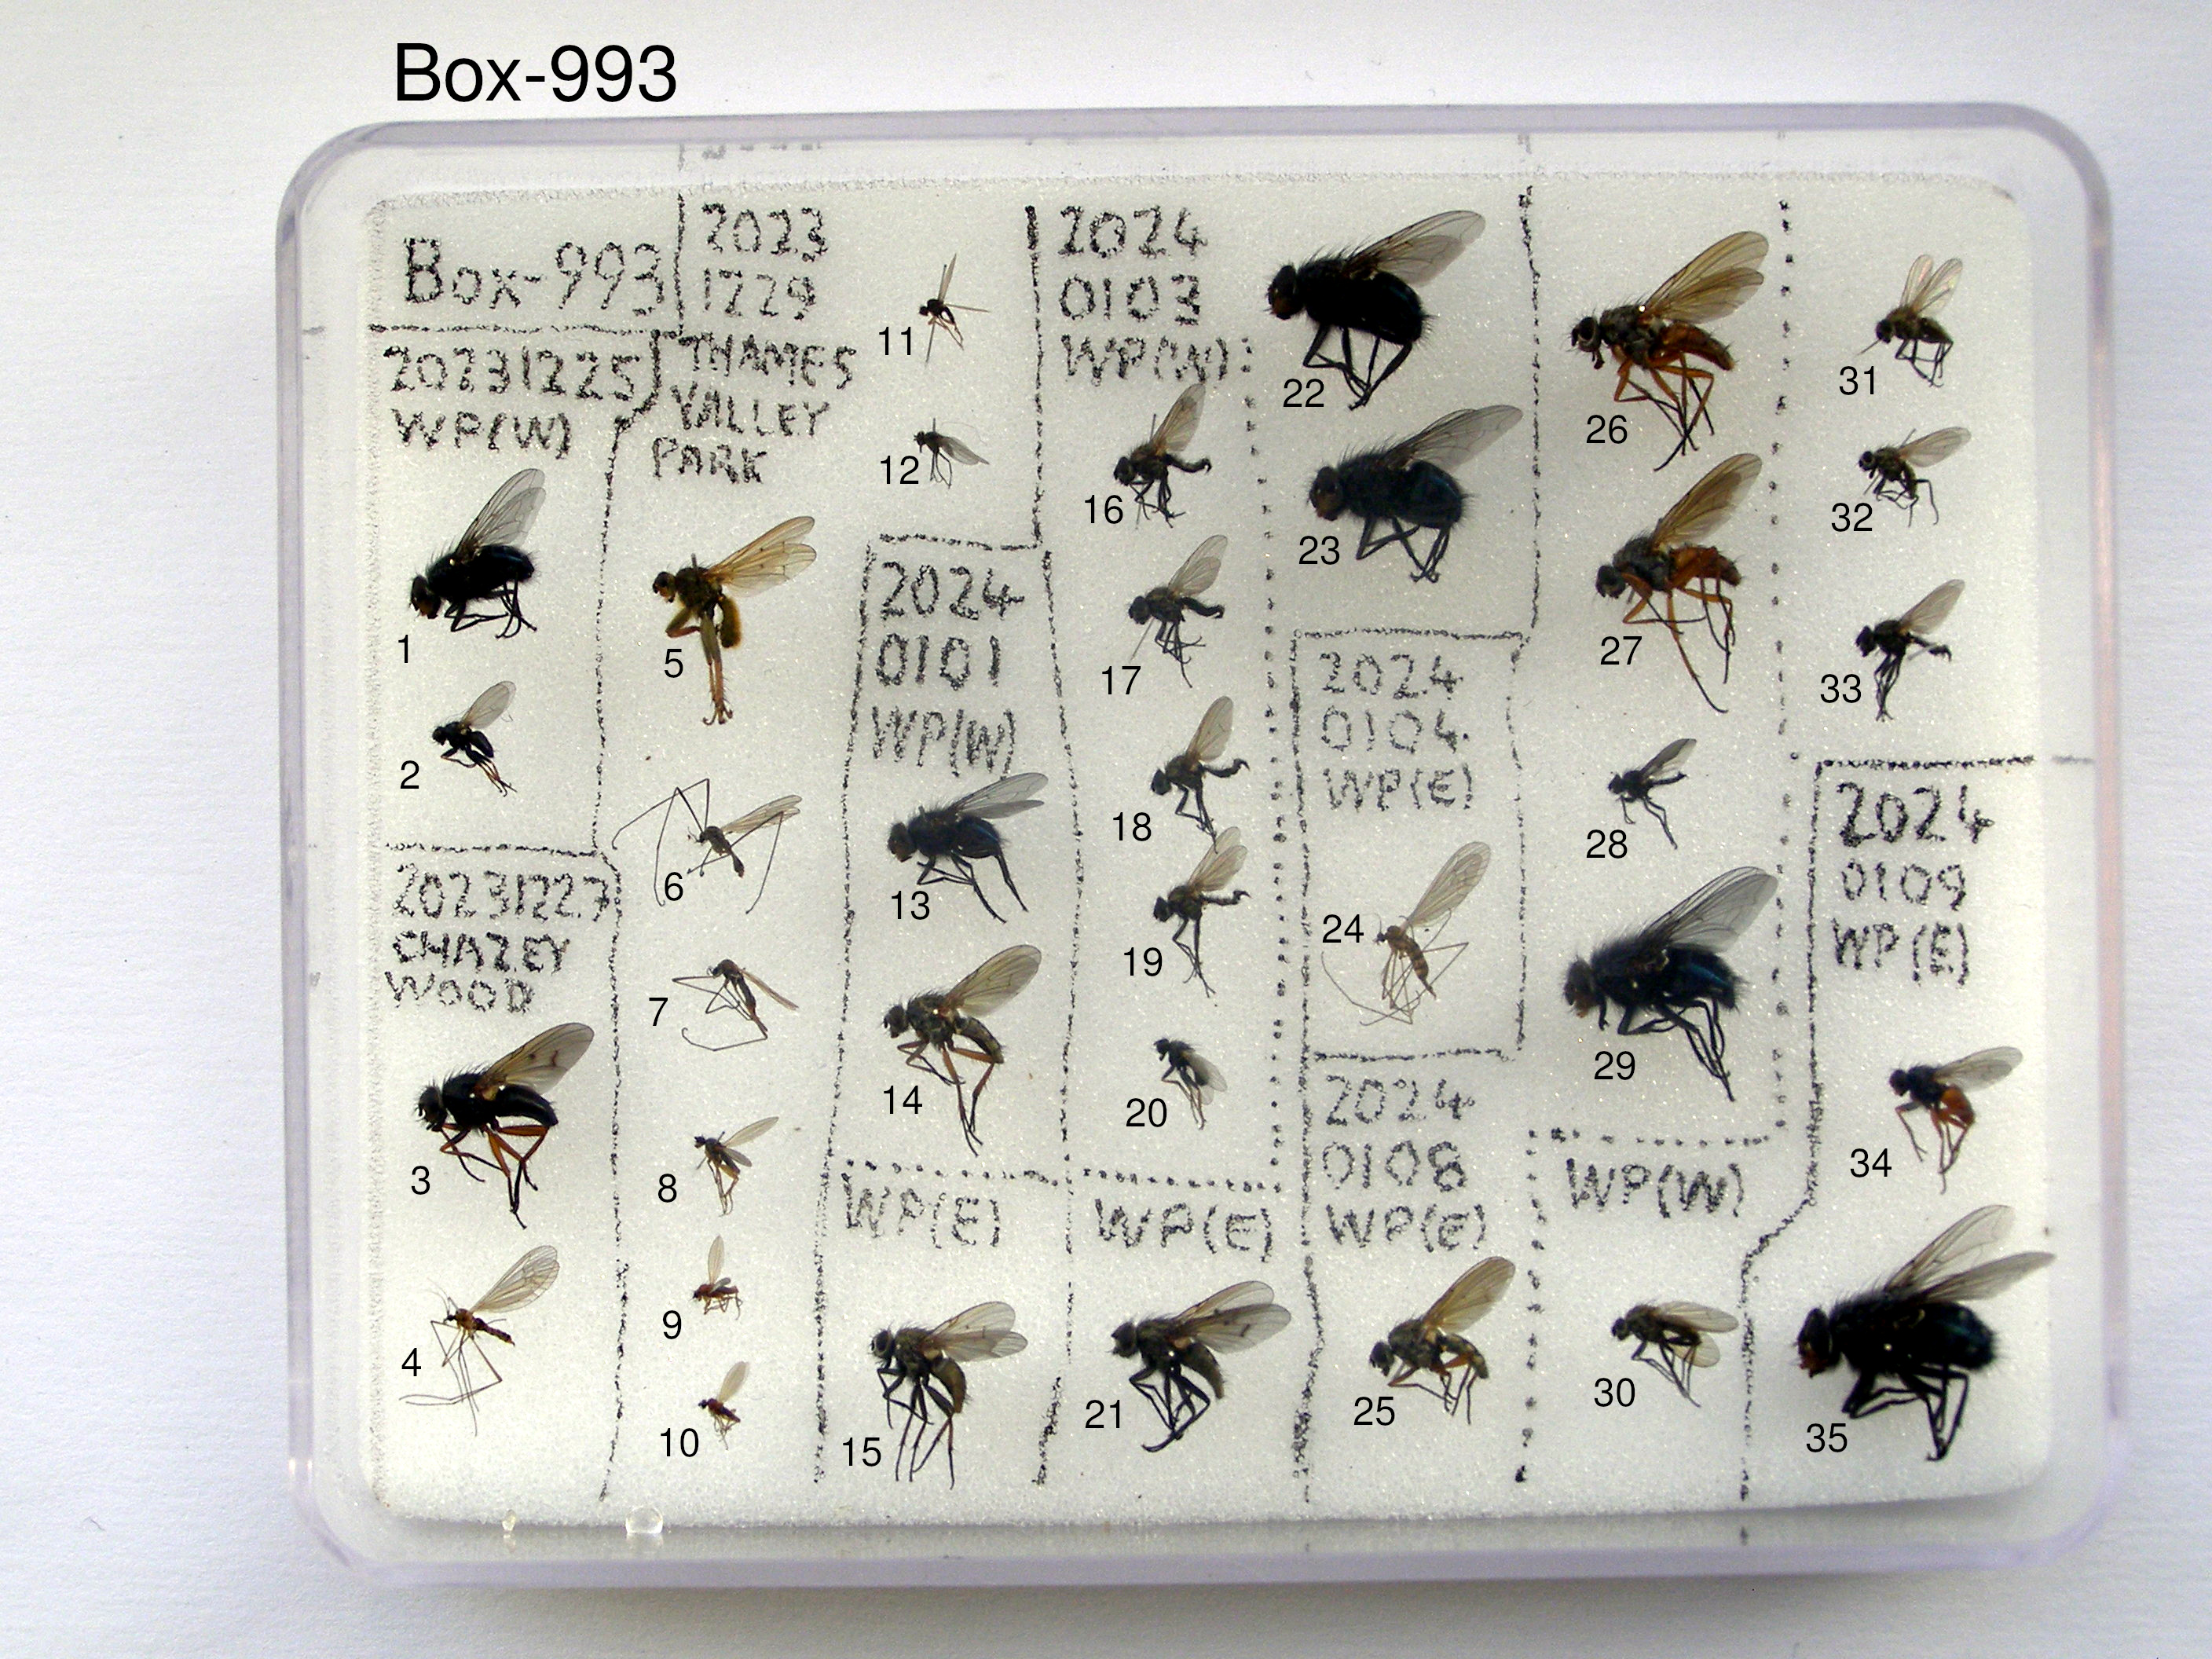 Box-993
Box-993
20231225
WP(W)
1
2
20231227
CHAZEY
WOOD
3
4
2023
1229
THAMES
VALLEY
PARK
5
6
7
8
9
10
11
12
2024
0101
WP(W)
13
14
WP(E)
15
2024
0103
WP(W)
16
17
18
19
20
WP(E)
21
22
23
2024
0104
WP(E)
24
2024
0108
WP(E)
25
26
27
28
29
WP(W)
30
31
32
33
2024
0109
WP(E)
34
35